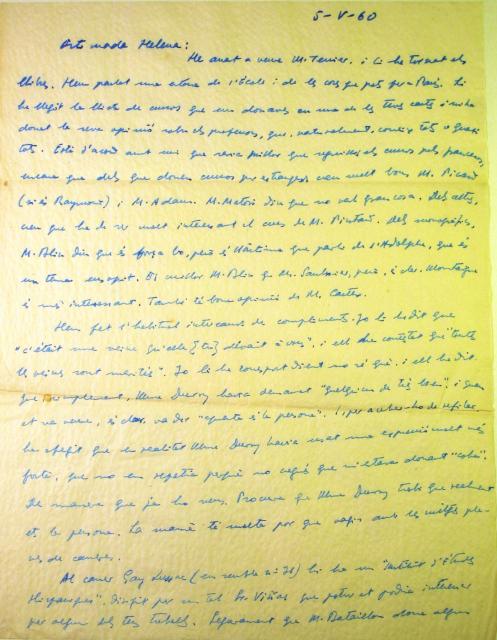 5-V-60
Estimada Helena:
He anat a veure M. Terrier i li he tornat els
llibres. Hem parlat una estona de l'École i de les coses que pots fer a París. Li
he llegit la llista de cursos que em donaves en una de les teves cartes i m'ha
donat la seva opinió sobre els professors, que, naturalment, coneix tots o quasi
tots. Està d'acord amb mi que seria millor que seguissis els cursos pels francesos,
encara que dels que donen cursos per estrangers són molt bons M. Picard
(si és Raymond) i M. Adam. M. Matoré diu que no val gran cosa. Dels altres,
creu que ha de ser molt interessant el curs de M. Pintard. Dels monogràfics,
M. Blin diu que és força bo, però és llàstima que parli de l'Adolphe, que és
un tema M. Blin que M. Saulnier, però, és clar, Montaigne
és més interessant. També té bona opinió de M. Castex.
Hem fet l'habitual intercanvi de compliments. Jo li he dit que
"c'était une veine qu'elle [tu] vous", i ell m'ha contestat que "toutes
les veines sont méritées". Jo li he correspost dient no sé què, i ell ha dit
que, simplement, Mme Durry havia demanat "quelqu'un de très bien", i quan
et va veure, és clar, va dir "la personne". I, per acabar-ho de refilar,
ha afegit que en realitat Mme Durry havia usat una expressió molt més
forta, que no em repetia perquè no cregués que m'estava donant "coba".
De manera que ja ho veus. Procura que Mme Durry trobi que realment
ets la persona. La mamà té molta por que vagis amb les mitges ple-
nes de carreres.
Al carrer Gay Lussac (em sembla nº 31) hi ha un "Institut d'Études
Hispaniques", dirigit per un tal Sr. Viñas que potser et podria interessar
per algun dels teus treballs. Segurament que M. Bataillon dóna algun